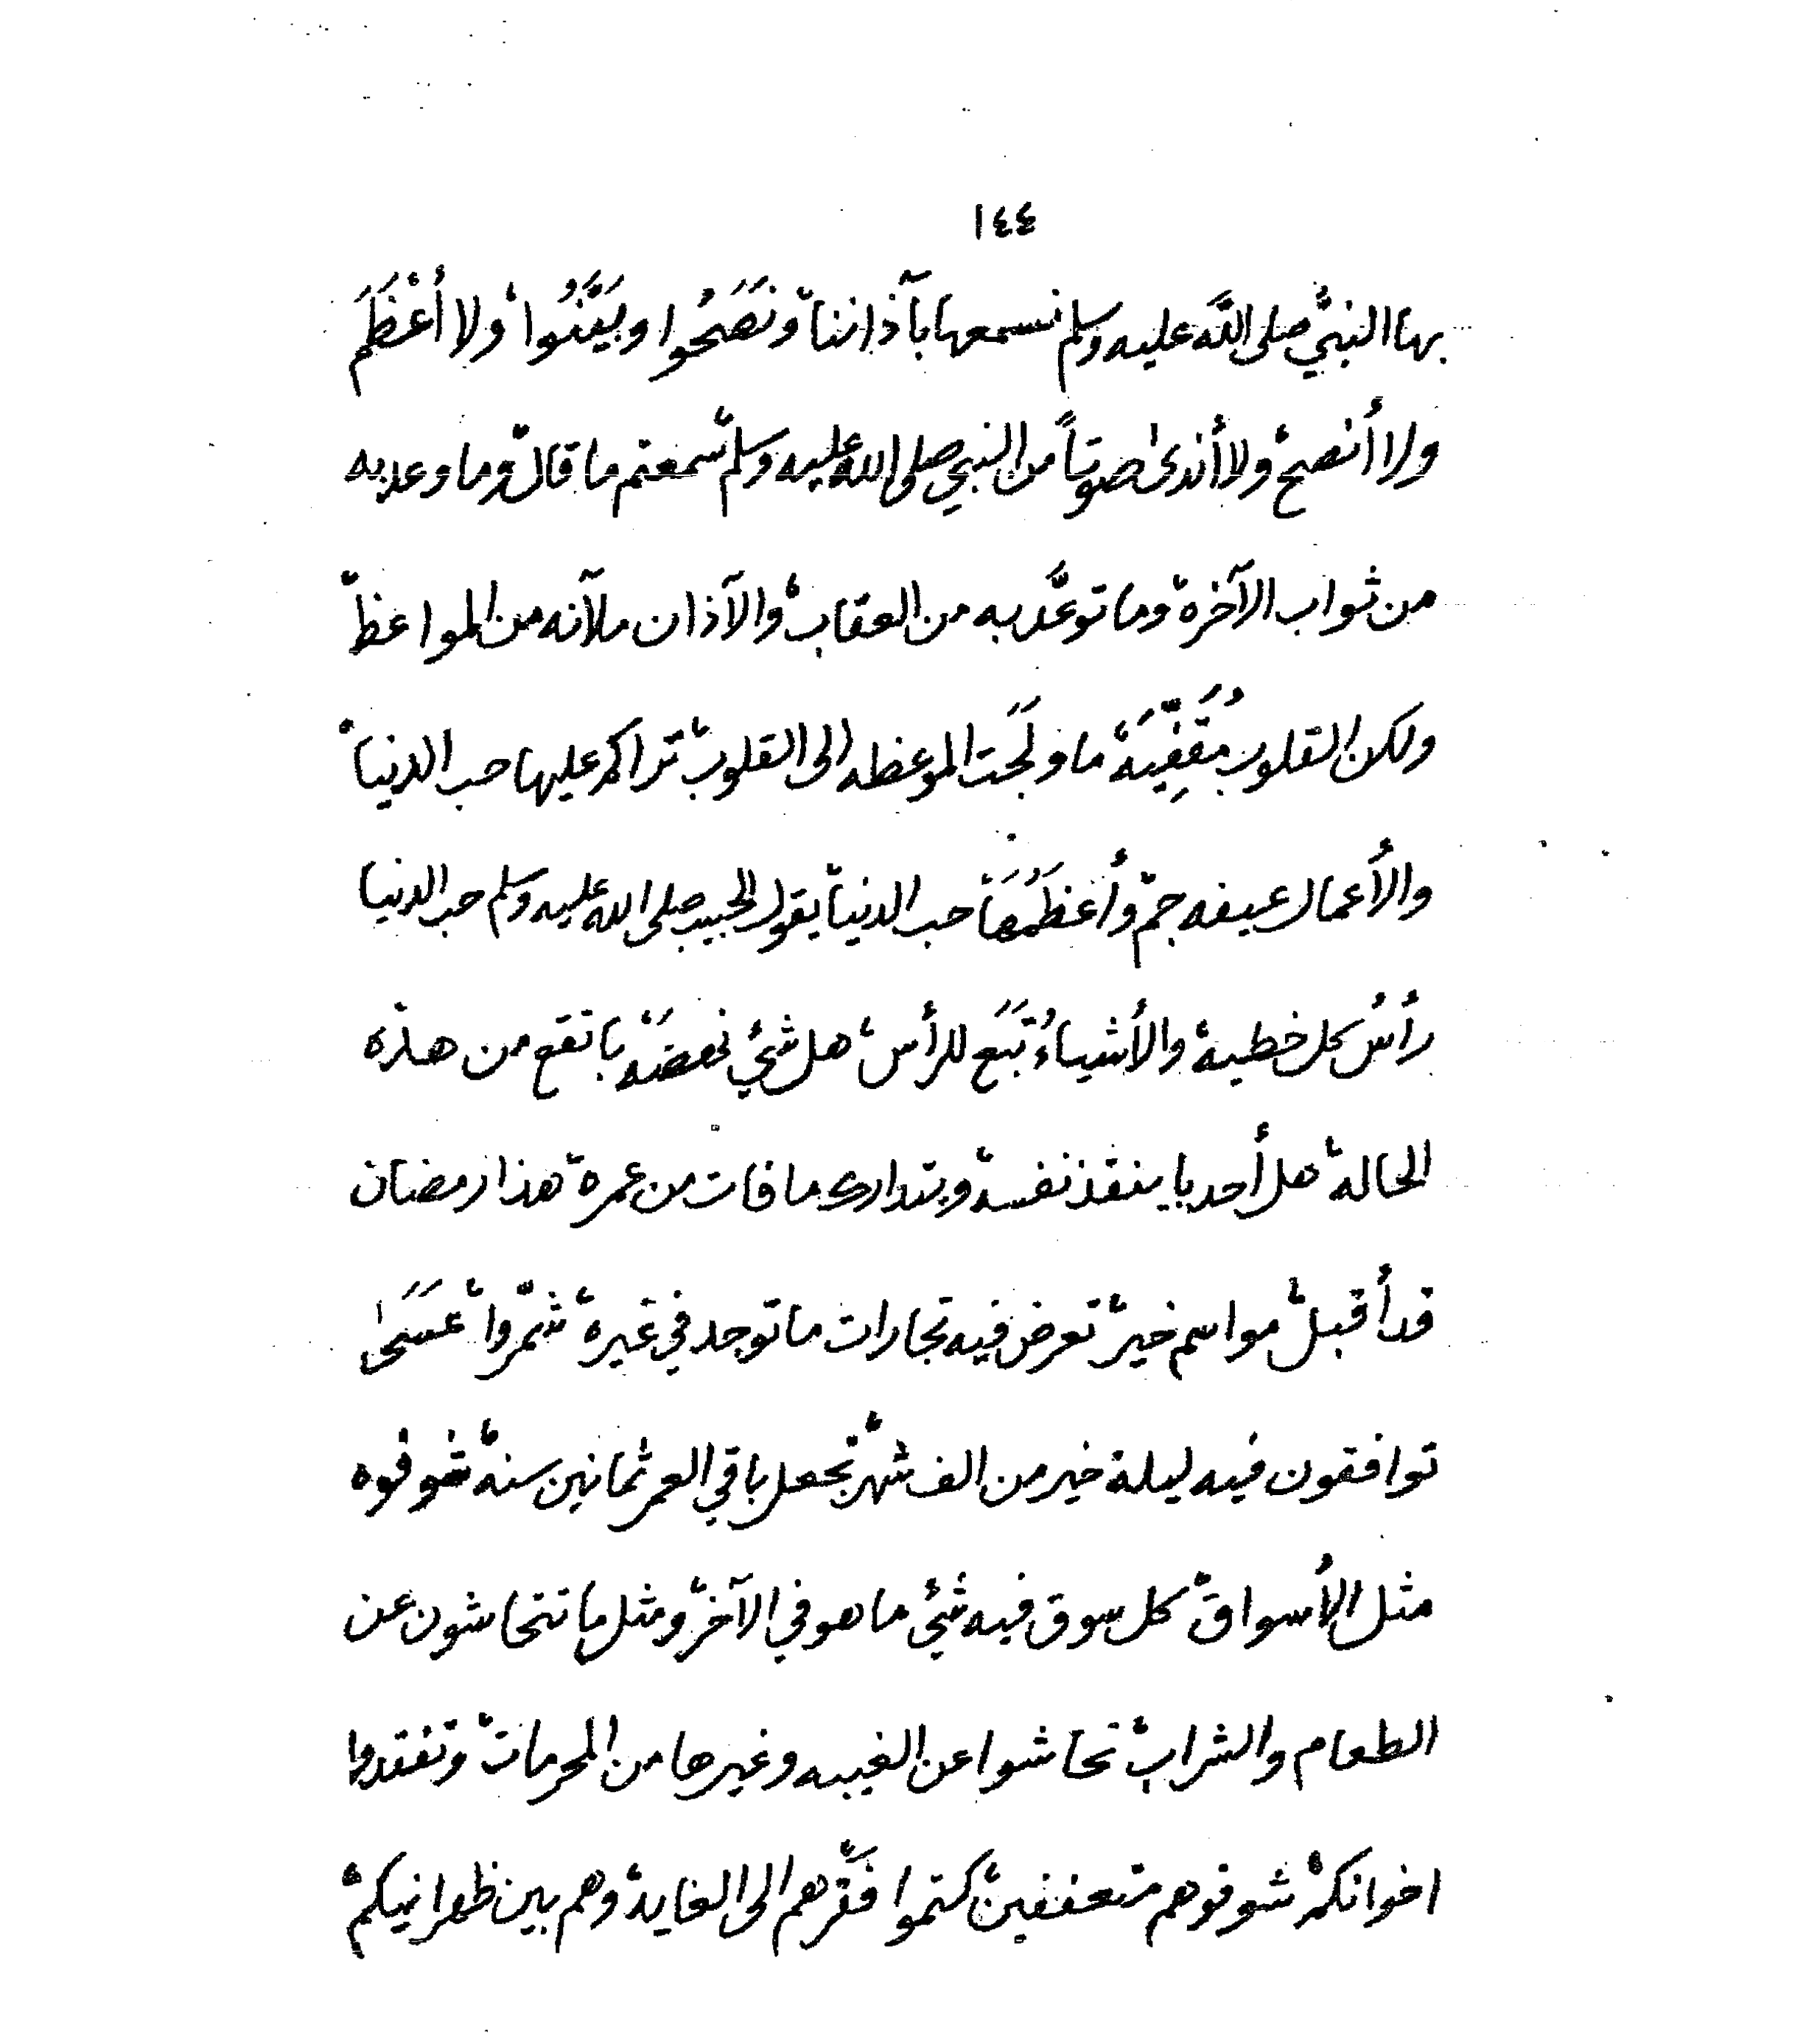 ١٤٤
بها النبيُّ صلى اللَّه عليه وسلم نسمعها بآذاننا، وَنَصَحُوا وبَيَّنُوا، ولا أَعْظَمَ
ولا أنصح، ولا أندىٰ صوتاً من النبي صلى الله عليه وسلم، سمعتم ما قال، وما وعد به
من ثواب الآخرة، وما توعَّد به من العقاب، والآذان ملآنه من المواعظ،
ولكن القلوب مُقَفِّيَهْ، ما وَلَجَت الموعظه الى القلوب، تراكم عليها حب الدنيا،
والأعمال عيفه جمّ، وأعظَمُهَا، حب الدنيا، يقول الحبيب صلى الله عليه وسلم حب الدنيا
رأسُ كل خطيئة، والأشياءُ تَبَع للرأس، هل شيْ نهضَهْ باتقع من هذه
الحالة، هل أحد باينقذ نفسه، ويتدارك ما فات من عمره، هذا رمضان
قد أقبل، مواسم خير، تعرض فيه تجارات ما توجد في غيره، شمِّروا، عَسَىٰ
توافقون فيه ليلة خير من الف شهر، تجعل باقي العمر ثمانين سنه، شوفوه
مثل الأسواق، كل سوق فيه شيْ ما هو في الآخر، ومثل ما تتحاشون عن
الطعام والشراب، تحاشوا عن الغيبه وغيرها من المحرمات، وتفقدوا
اخوانكم، شوفوهم متعففين، كتموا فَقْرهم الى الغاية، وهم بين ظهرانيكم،